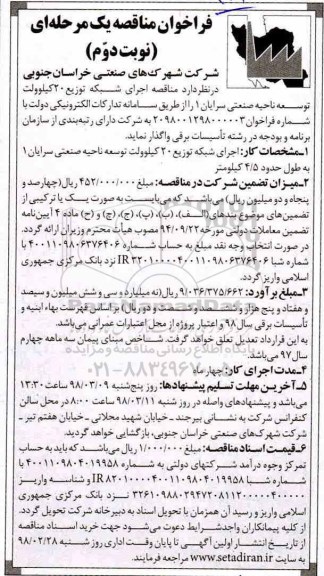 فراخوان مناقصه یک مرحله‌ای
(نوبت دوّم)
شرکت شهرک‌های صنعتی خراسان جنوبی
در نظر دارد مناقصه اجرای شبکه توزیع ۲۰ کیلوولت
توسعه ناحیه صنعتی سرایان ۱ را از طریق سامانه تدارکات الکترونیکی دولت با
شماره فراخوان ۲۰۹۸۰۰۱۲۹۸۰۰۰۰۰۳ به شرکت دارای رتبه‌بندی از سازمان
برنامه و بودجه در رشته تأسیسات برقی واگذار نماید.
۱-مشخصات کار: اجرای شبکه توزیع ۲۰ کیلوولت توسعه ناحیه صنعتی سرایان ۱
به طول حدود ۴/۵ کیلومتر
۲-میزان تضمین شرکت در مناقصه: مبلغ ۴۵۲/۰۰۰/۰۰۰ ریال (چهارصد و
پنجاه و دو میلیون ریال) می‌باشد که می‌بایست به صورت یک یا ترکیبی از
تضمین‌های موضوع بندهای (الف)، (ب)، (پ)، (ج)، (چ) و (ح) ماده ۴ آیین‌نامه
تضمین معاملات دولتی مورخه ۹۴/۰۹/۲۲ مصوب هیأت محترم وزیران ارائه گردد.
در صورت انتخاب وجه نقد مبلغ به حساب شماره ۴۰۰۱۱۰۹۸۰۶۳۷۶۴۰۶ با
شماره شبا IR ۳۲۰۱۰۰۰۰۴۰۰۱۱۰۹۸۰۶۳۷۶۴۰۶ نزد بانک مرکزی جمهوری
اسلامی واریز گردد.
۳-مبلغ برآورد: ۹/۰۳۶/۳۷۵/۶۶۲ ریال (نه میلیارد و سی و شش میلیون و سیصد
و هفتاد و پنج هزار و ششصد و شصت و دو ریال) بر اساس فهرست بهاء ابنیه و
تأسیسات برقی سال ۹۸ و اعتبار پروژه از محل اعتبارات عمرانی می‌باشد.
به این قرارداد تعدیل تعلق خواهد گرفت. شاخص مبنای پیمان سه ماهه چهارم
سال ۹۷ می‌باشد.
۴-مدت اجرای کار: چهار ماه
۵-آخرین مهلت تسلیم پیشنهادها: روز پنج‌شنبه ۹۸/۰۳/۰۹ ساعت ۱۳:۳۰
می‌باشد و پیشنهادهای واصله در روز شنبه ۹۸/۰۳/۱۱ ساعت ۸:۰۰ در محل سالن
کنفرانس شرکت به نشانی بیرجند - خیابان شهید محلاتی - خیابان هفتم تیر -
شرکت شهرک‌های صنعتی خراسان جنوبی، بازگشایی خواهد گردید.
۶-قیمت اسناد مناقصه: مبلغ ۱/۰۰۰/۰۰۰ ریال می‌باشد که باید به حساب
تمرکز وجوه درآمد شرکتهای دولتی به شماره ۴۰۰۱۱۰۹۸۰۴۰۱۹۹۵۸ با
شماره شبا IR ۸۲۰۱۰۰۰۰۴۰۰۱۱۰۹۸۰۴۰۱۹۹۵۸ و شناسه واریز
نزد بانک مرکزی جمهوری
اسلامی واریز و رسید آن همزمان با تحویل اسناد به دبیرخانه شرکت تحویل گردد.
از کلیه پیمانکاران واجد شرایط دعوت می‌شود جهت خرید اسناد مناقصه
از تاریخ انتشار اولین آگهی تا پایان وقت اداری روز شنبه ۹۸/۰۲/۲۸
به سایت www.setadiran.ir مراجعه فرمایند.
پایگاه اطلاع رسانی مناقصه و مزایده
۰۲۱-۸۸۳۴۹۶۷۰